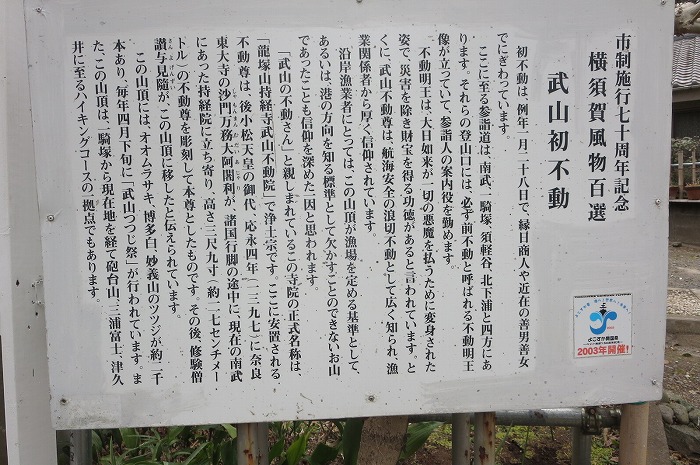 市制施行七十周年記念
横須賀風物百選
武山初不動
初不動は、例年一月二十八日で、縁日商人や近在の善男善女
でにぎわっています。
ここに至る参詣道は、南武、一騎塚、須軽谷、北下浦と四方にあ
ります。それらの登山口には、必ず前不動と呼ばれる不動明王
像が立っていて、参詣人の案内役を勤めます。
不動明王は、大日如来が一切の悪魔を払うために変身された
姿で、災害を除き財宝を得る功徳があると言われています。と
くに、武山不動尊は、航海安全の浪切不動として広く知られ、漁
業関係者から厚く信仰されています。
沿岸漁業者にとっては、この山頂が漁場を定める基準として、
あるいは、港の方向を知る標準として欠かすことのできないお山
であったことも信仰を深めた一因と思われます。
「武山の不動さん」と親しまれているこの寺院の正式名称は、
「龍塚山持経寺武山不動院」で浄土宗です。ここに安置される
不動尊は、後小松天皇の御代、応永四年(一三九七)に奈良
東大寺の沙門万務大阿闍利が、諸国行脚の途中に、現在の南武
にあった持経院に立ち寄り、高さ三尺九寸(約一一七センチメー
トル)の不動尊を彫刻して本尊としたものです。その後、修験僧
讃与見随が、この山頂に移したと伝えられています。
この山頂には、オオムラサキ、博多白、妙義山のツツジが約二千
本あり、毎年四月下旬に「武山つつじ祭」が行われています。ま
た、この山頂は、一騎塚から現在地を経て砲台山、三浦富士、津久
井に至るハイキングコースの一拠点でもあります。
さんよけんずい
2003年開催!